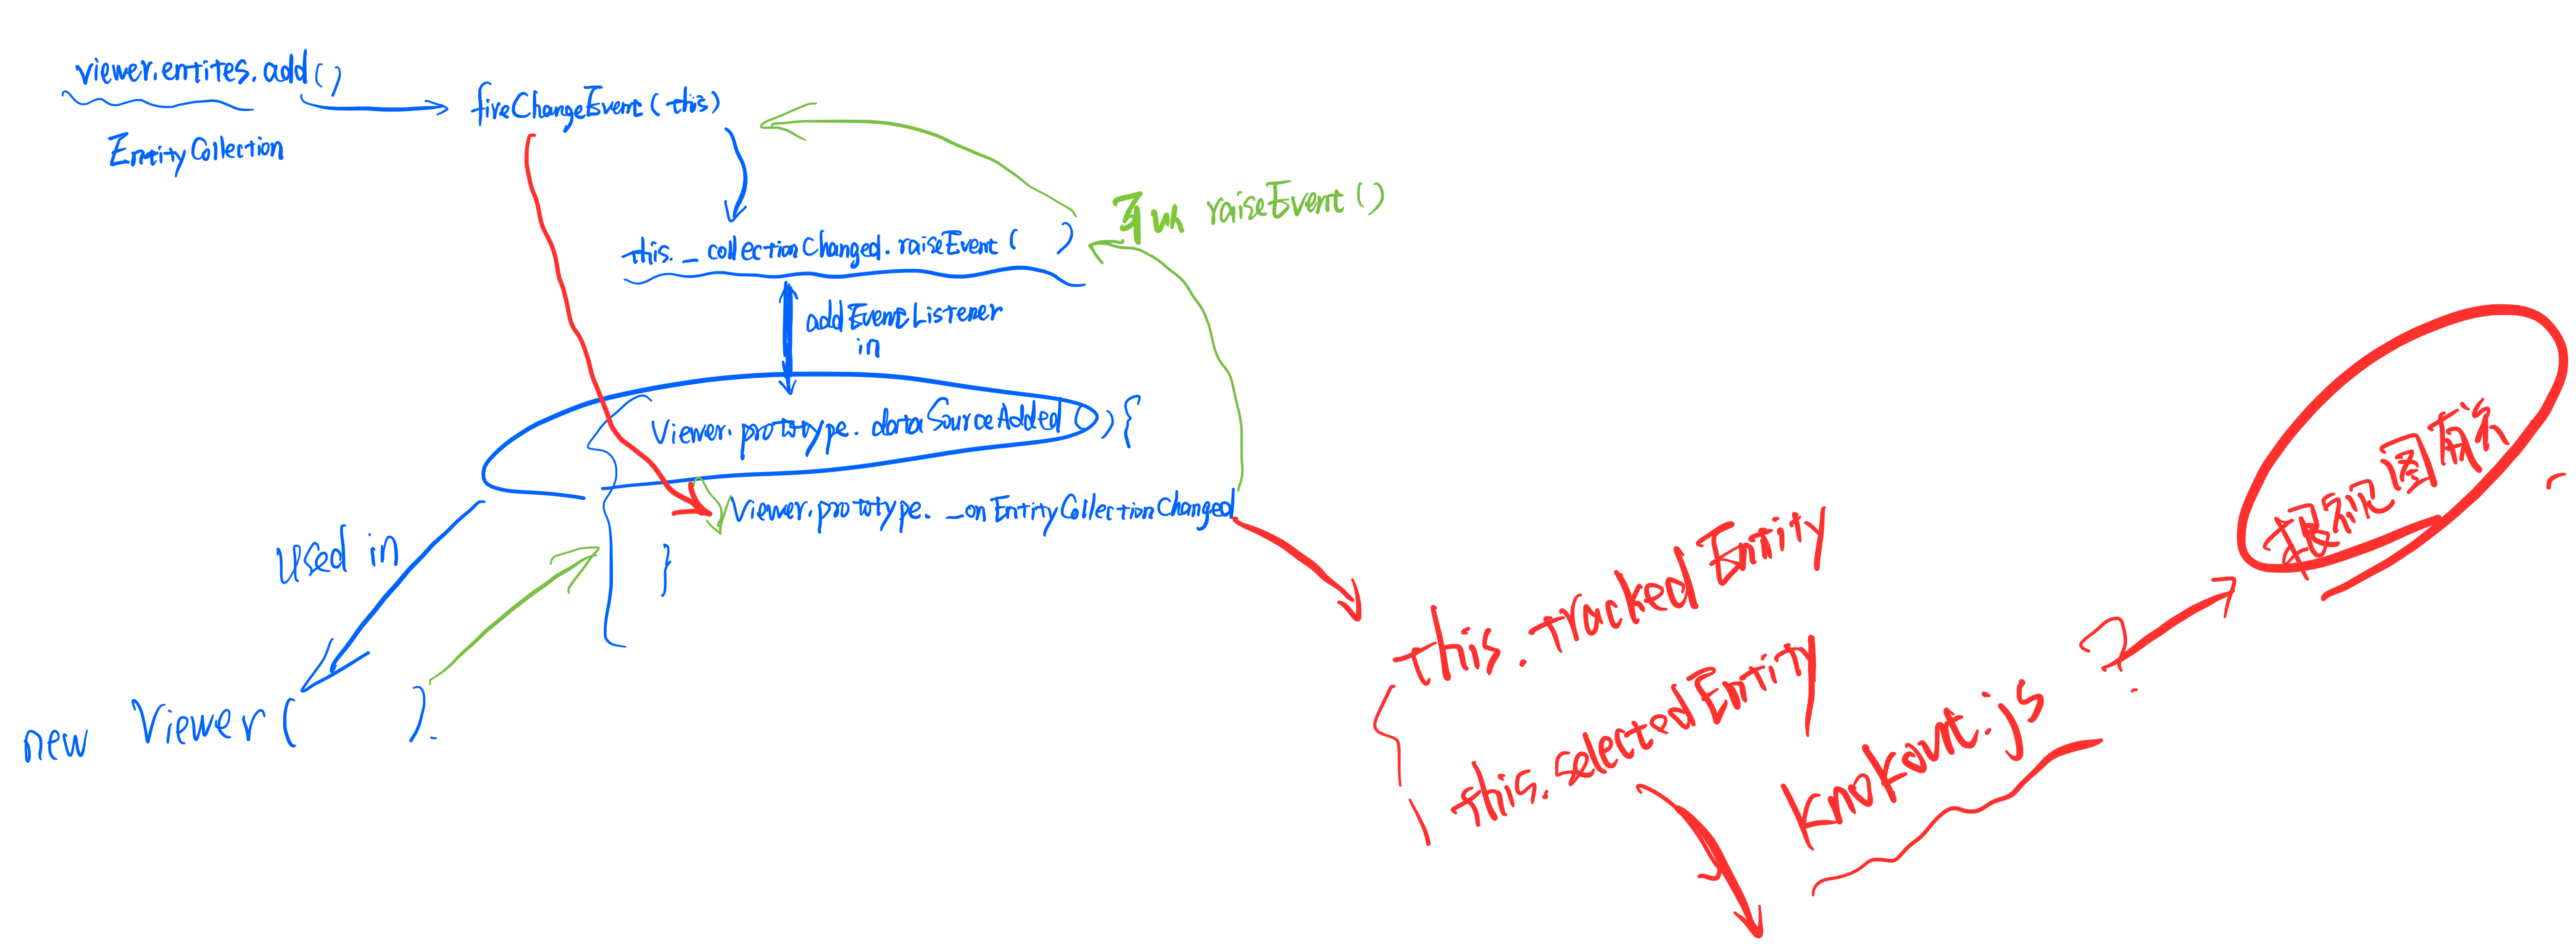 viewer.entites.add()
EntityCollection
fireChangeEvent(this)
this._collectionChanged.raiseEvent( )
raiseEvent()
addEventListener
in
Viewer.prototype.dataSourceAdded(){
Viewer.prototype._onEntityCollectionChanged
}
used in
new Viewer( ).
this.trackedEntity
this.selectedEntity
knokout.js ?
视图有关